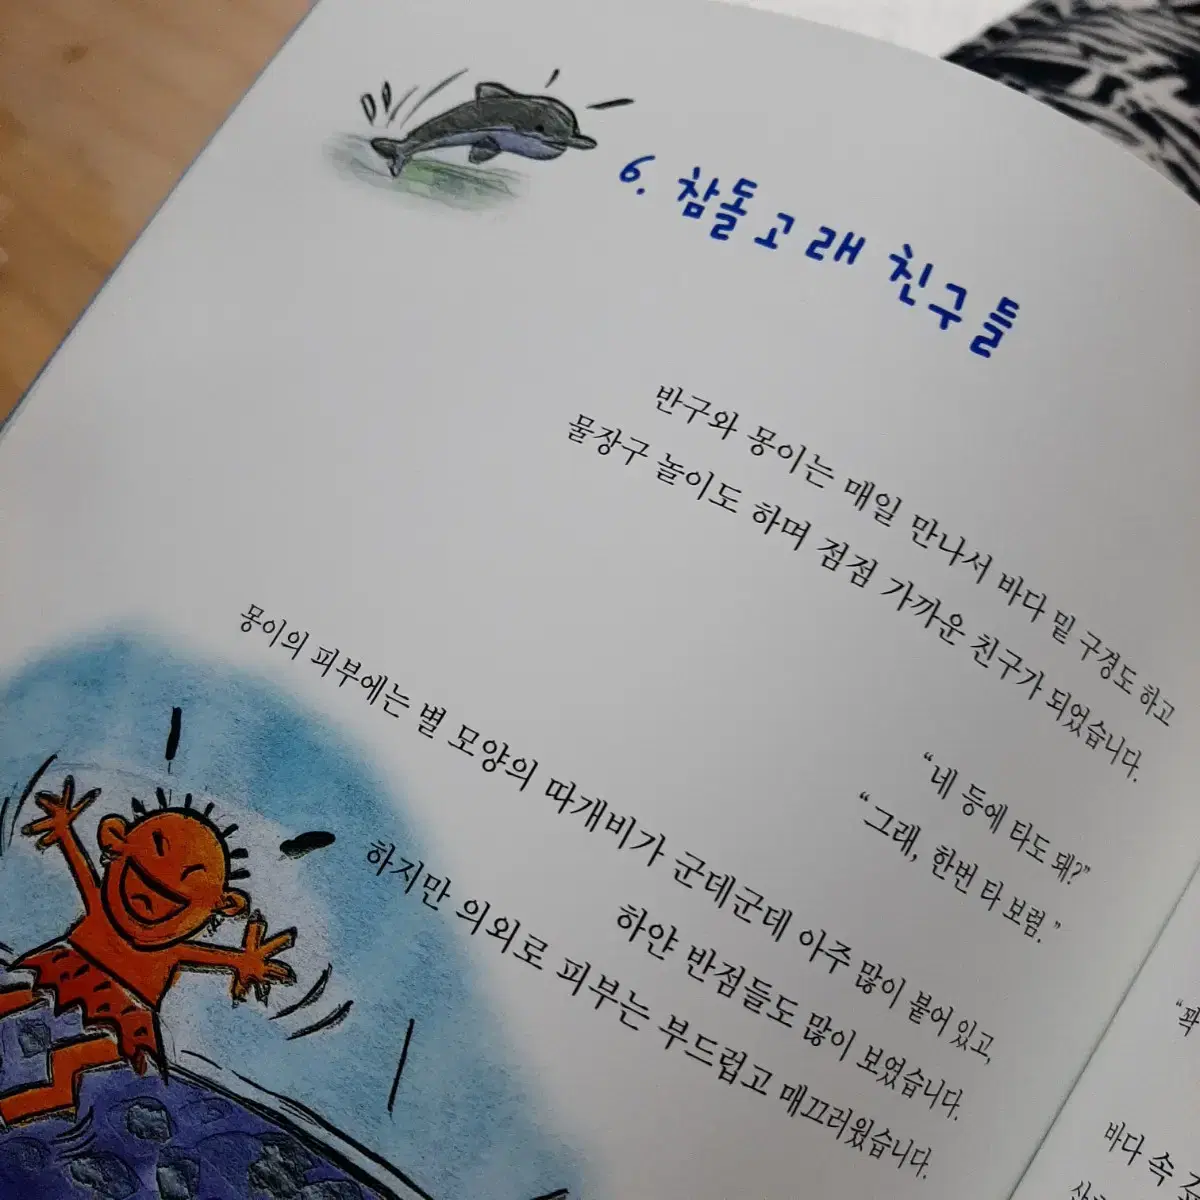 6. 참돌고래 친구들
반구와 몽이는 매일 만나서 바다 밑 구경도 하고
물장구 놀이도 하며 점점 가까운 친구가 되었습니다.
“네 등에 타도 돼?”
“그래, 한번 타 보렴.”
몽이의 피부에는 별 모양의 따개비가 군데군데 아주 많이 붙어 있고,
하얀 반점들도 많이 보였습니다.
하지만 의외로 피부는 부드럽고 매끄러웠습니다.
“꽉
바다 속